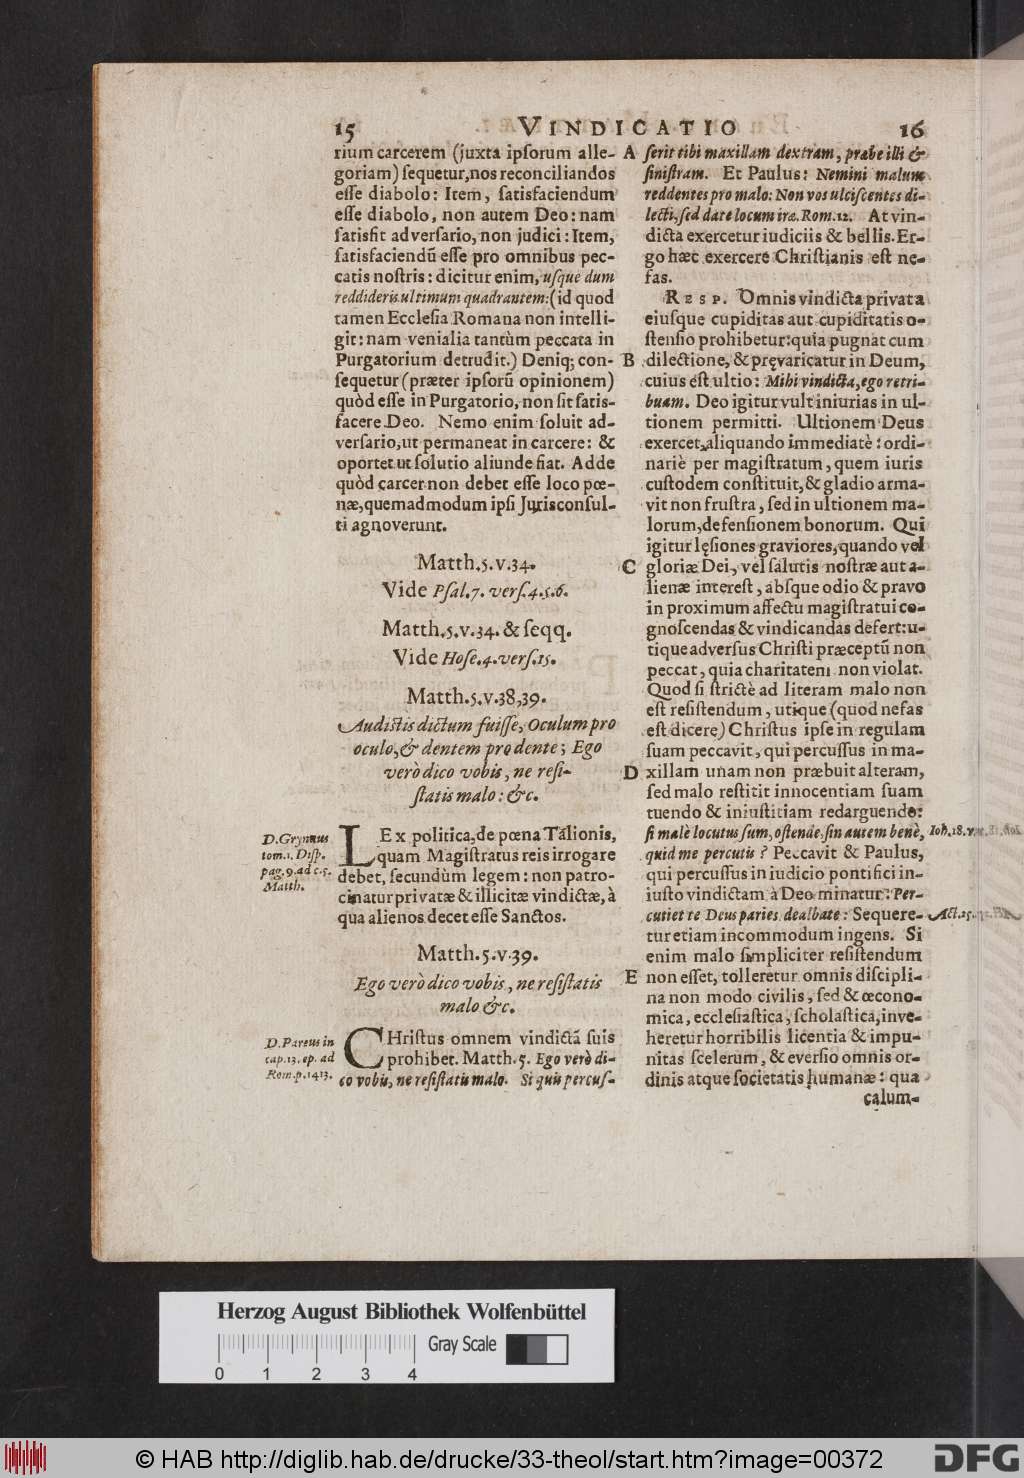 15
VINDICATIO
16
rium carcerem (juxta ipſorum alle-
goriam) ſequetur, nos reconciliandos
eſſe diabolo: Item, ſatisfaciendum
eſſe diabolo, non autem Deo: nam
ſatisfit adverſario, non judici: Item,
ſatisfaciendũ eſſe pro omnibus pec-
catis noſtris: dicitur enim, uſque dum
reddideris ultimum quadrantem: (id quod
tamen Eccleſia Romana non intelli-
git: nam venialia tantùm peccata in
Purgatorium detrudit.) Deniq; con-
ſequetur (præter ipſorũ opinionem)
quòd eſſe in Purgatorio, non ſit ſatis-
facere Deo. Nemo enim ſoluit ad-
verſario, ut permaneat in carcere: &
oportet ut ſolutio aliunde fiat. Adde
quòd carcer non debet eſſe loco pœ-
næ, quemadmodum ipſi Jurisconſul-
ti agnoverunt.
Matth.5.v.34.
Vide Pſal.7. verſ.4.5.6.
Matth.5.v.34. & ſeqq.
Vide Hoſe.4.verſ.15.
Matth.5.v.38,39.
Audistis dictum fuiſſe, Oculum pro
oculo, & dentem pro dente; Ego
verò dico vobis, ne reſi-
ſtatis malo: &c.
D. Grynæus
tom.1. Diſp.
pag.9. ad c.5.
Matth.
LEx politica, de pœna Talionis,
quam Magiſtratus reis irrogare
debet, ſecundùm legem: non patro-
cinatur privatæ & illicitæ vindictæ, à
qua alienos decet eſſe Sanctos.
Matth.5.v.39.
Ego verò dico vobis, ne reſiſtatis
malo &c.
D. Pareus in
cap.13. ep. ad
Rom.p.1413.
CHriſtus omnem vindictã ſuis
prohibet. Matth. 5. Ego verò di-
co vobis, ne reſiſtatis malo. Si quis percuſ-
A ſerit tibi maxillam dextram, præbe illi &
ſiniſtram. Et Paulus: Nemini malum
reddentes pro malo: Non vos ulciſcentes di-
lecti, ſed date locum iræ. Rom.12. At vin-
dicta exercetur iudiciis & bellis. Er-
go hæc exercere Chriſtianis eſt ne-
fas.
RESP. Omnis vindicta privata
eiuſque cupiditas aut cupiditatis o-
ſtenſio prohibetur: quia pugnat cum
B dilectione, & pręvaricatur in Deum,
cuius eſt ultio: Mihi vindicta, ego retri-
buam. Deo igitur vult iniurias in ul-
tionem permitti. Ultionem Deus
exercet, aliquando immediatè: ordi-
nariè per magiſtratum, quem iuris
cuſtodem conſtituit, & gladio arma-
vit non fruſtra, ſed in ultionem ma-
lorum, defenſionem bonorum. Qui
igitur lęſiones graviores, quando vel
C gloriæ Dei, vel ſalutis noſtræ aut a-
lienæ intereſt, abſque odio & pravo
in proximum affectu magiſtratui co-
gnoſcendas & vindicandas defert: u-
tique adverſus Chriſti præceptũ non
peccat, quia charitatem non violat.
Quod ſi ſtrictè ad literam malo non
eſt reſiſtendum, utique (quod nefas
eſt dicere) Chriſtus ipſe in regulam
ſuam peccavit, qui percuſſus in ma-
D xillam unam non præbuit alteram,
ſed malo reſtitit innocentiam ſuam
tuendo & iniuſtitiam redarguendo:
ſi malè locutus ſum, oſtende, ſin autem benè,
Ioh.18.v.
quid me percutis? Peccavit & Paulus,
qui percuſſus in iudicio pontifici in-
iuſto vindictam à Deo minatur: Per-
cutiet te Deus paries dealbate: Sequere-
Act.25.
tur etiam incommodum ingens. Si
enim malo ſimpliciter reſiſtendum
E non eſſet, tolleretur omnis diſcipli-
na non modo civilis, ſed & œcono-
mica, eccleſiaſtica, ſcholaſtica, inve-
heretur horribilis licentia & impu-
nitas ſcelerum, & everſio omnis or-
dinis atque ſocietatis humanæ: qua
calum-
Herzog August Bibliothek Wolfenbüttel
Gray Scale
0 1 2 3 4
© HAB http://diglib.hab.de/drucke/33-theol/start.htm?image=00372
DFG